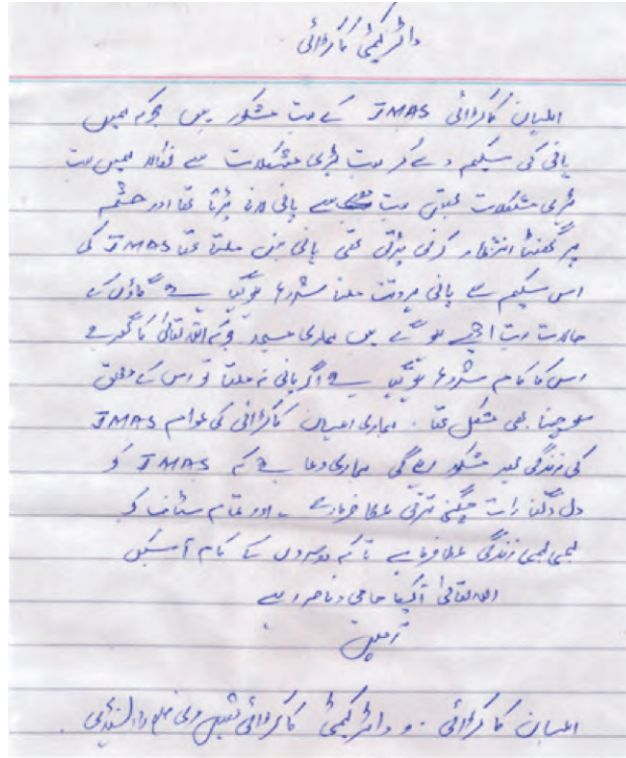 واٹر کمیٹی کاکڑائی
اہلیان کاکڑائی JMAS کے بہت مشکور ہیں جو کہ ہمیں
پانی کی سکیم دے کر بہت بڑی مشکلات سے نکالا ہمیں بہت
بڑی مشکلات تھیں بہت سے پانی لانا پڑتا تھا اور چشمہ
پر گھنٹا انتظار کرنی پڑتی تھی پانی نہیں ملتا تھا JMAS کی
اس سکیم سے پانی ہر وقت ملنا شروع ہو گیا ہے گاؤں کے
حالات بہت اچھے ہو گے ہیں ہماری مسجد جو کہ اللہ تعالیٰ کا گھر ہے
اس کا کام شروع ہو گیا ہے اگر پانی نہ ملتا تو اس کے متعلق
سوچنا بھی مشکل تھا۔ ہماری اہلیان کاکڑائی کی عوام JMAS
کی زندگی بھر مشکور رہے گی ہماری دعا ہے کہ JMAS کو
دن دگنی رات چگنی ترقی عطا فرمائے۔ اور تمام سٹاف کو
لمبی لمبی زندگی عطا فرمائے تاکہ دوسروں کے کام آ سکیں
اللہ تعالیٰ آپکا حامی و ناصر رہے
آمین
اہلیان کاکڑائی۔ و واٹر کمیٹی کاکڑائی ضلع راولپنڈی